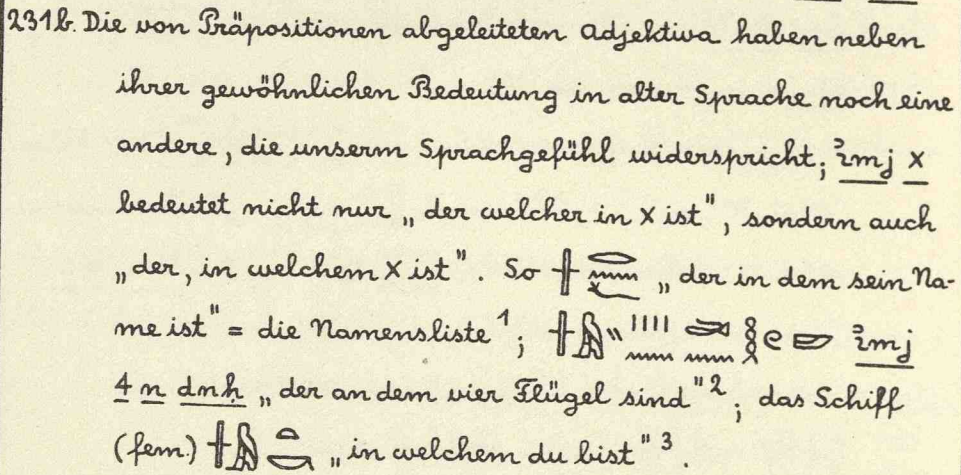 231b. Die von Präpositionen abgeleiteten Adjektiva haben neben
ihrer gewöhnlichen Bedeutung in alter Sprache noch eine
andere, die unserm Sprachgefühl widerspricht; ꞽmj x
bedeutet nicht nur „der welcher in x ist", sondern auch
„der, in welchem x ist". So 𓏶𓂋𓈖𓆑 „der in dem sein Na-
me ist" = die Namensliste ¹; ꞽmj
4 n dnḥ „der an dem vier Flügel sind" ²; das Schiff
(fem.) 𓏶𓅓𓏏𓎡 „in welchem du bist" ³.